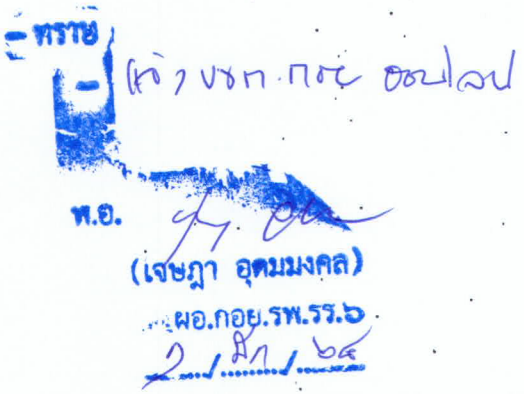 - ทราบ
- แจ้ง นขต.กอย ออนไลน์
พ.อ.
(เจษฎา อุดมมงคล)
ผอ.กอย.รพ.รร.๖
๒ / มี.ค. / ๖๕